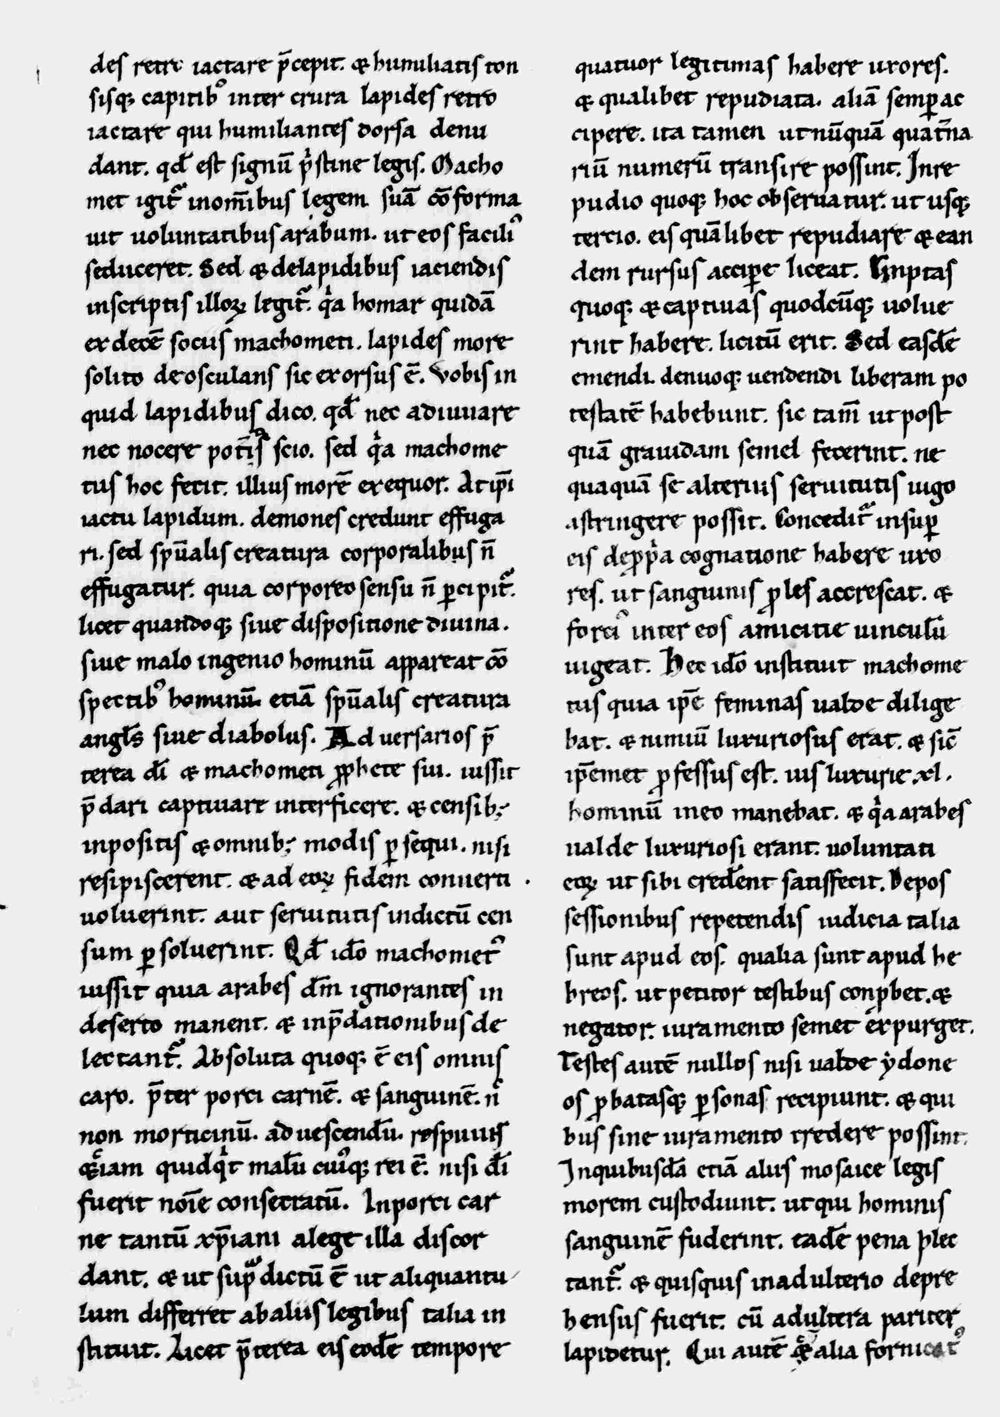 des retro iactare p̄cepit. & humiliatis ton
sisq; capitib⁹ inter crura lapides retro
iactare qui humiliantes dorsa denu
dant. qd̄ est signū pⁱstine legis. Macho
met igit᷑ inom̄ibus legem suā cōforma
uit uoluntatibus arabum. ut eos facili⁹
seduceret. Sed & delapidibus iaciendis
inscriptis illoꝝ legit᷑. qⁱa homar quidā
ex decē socus machometi. lapides more
solito deosculans sic exorsus ē. Vobis in
quid lapidibus dico. qd̄ nec adiuuare
nec nocere scio. sed qⁱa machome
tus hoc fecit. illius morē exequor. At ip̄i
iactu lapidum. demones credunt effuga
ri. sed sp̄ualis creatura corporalibus n̄
effugatur. quia corporeo sensu n̄ ꝑcipit᷑.
licet quandoq; siue dispositione diuina.
siue malo ingenio hominū appareat cō
spectib⁹ hominū. etiā sp̄ualis creatura
angl̄s siue diabolus. Ad uersarios p̄
terea dī & machometi ꝓphete sui. iussit
p̄dari captiuare interficere. & censib;
inpositis & omnib; modis ꝑsequi. nisi
resipiscerent. & ad eoꝝ fidem conuerti
uoluerint. aut seruitutis indictū cen
sum ꝑsoluerint. Qd̄ idō machomet⁹
iussit quia arabes dm̄ ignorantes in
deserto manent. & inp̄dationibus de
lectant᷑. Absoluta quoq; ē eis omnis
caro. p̄ter porci carnē. & sanguinē. n̄
non morticinū. ad uescendū. respuuis
etiam quidqⁱt malū cuiq; rei ē. nisi dī
fuerit noīe consecratū. Inporci car
ne tantū xp̄iani alege illa discor
dant. & ut supᵃdictū ē ut aliquantu
lum differret abaliis legibus talia in
stituit. Licet p̄terea eis eodē tempore
quatuor legitimas habere uxores.
& qualibet repudiata. aliā semꝑ ac
cipere. ita tamen ut nūquā quat̄na
riū numerū transire possint. Inre
pudio quoq; hoc obseruatur. ut usq;
tercio. eis quālibet repudiare & ean
dem rursus acciꝑe liceat. Emptas
quoq; & captiuas quodcūq; uolue
rint habere. licitū erit. Sed easdē
emendi. denuoq; uendendi liberam po
testatē habebunt. sic tam̄ ut post
quā grauidam semel fecerint. ne
quaquā se alterius seruitutis iugo
astringere possit. Concedit᷑ insuꝑ
eis deꝓpⁱa cognatione habere uxo
res. ut sanguinis ꝓles accrescat. &
forci⁹ inter eos amicitie uinculū
uigeat. Hec idō instituit machome
tus quia ip̄e feminas ualde dilige
bat. & nimiū luxuriosus erat. & sic̄
ip̄emet ꝓfessus est. uis luxurie xl.
hominū ineo manebat. & qⁱa arabes
ualde luxuriosi erant. uoluntati
eoꝝ ut sibi creder̄ent satisfecit. Depos
sessionibus repetendis iudicia talia
sunt apud eos. qualia sunt apud he
breos. ut petitor testibus conꝓbet. &
negator. iuramento semet expurget.
Testes autē nullos nisi ualde ydone
os ꝓbatasq; ꝑsonas recipiunt. & qui
bus sine iuramento credere possint.
Inquibusdā etiā aliis mosaice legis
morem custodiunt. ut qui hominis
sanguinē fuderint. eadē pena plec
tant᷑. & quisquis inadulterio depre
hensus fuerit. cū adultera pariter
lapidetur. Qui autē alia fornicat᷑